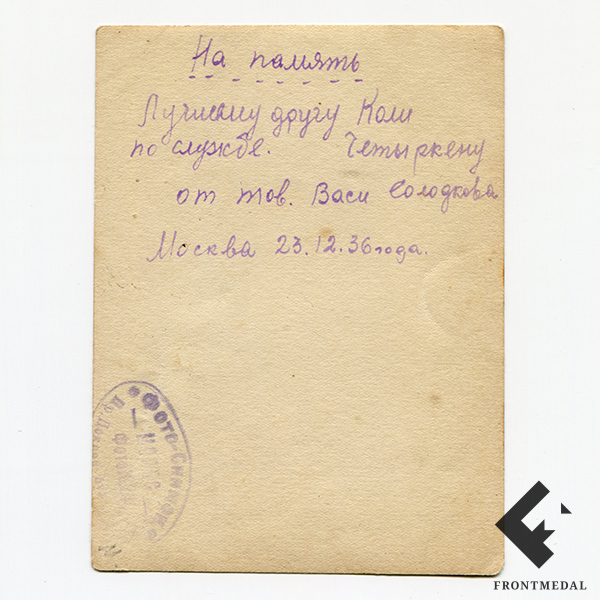 На память
Лучшему другу Коли
по службе. Четыркену
от тов. Васи Солодкова
Москва 23.12.36 года.
Фото-Снимки
FRONTMEDAL